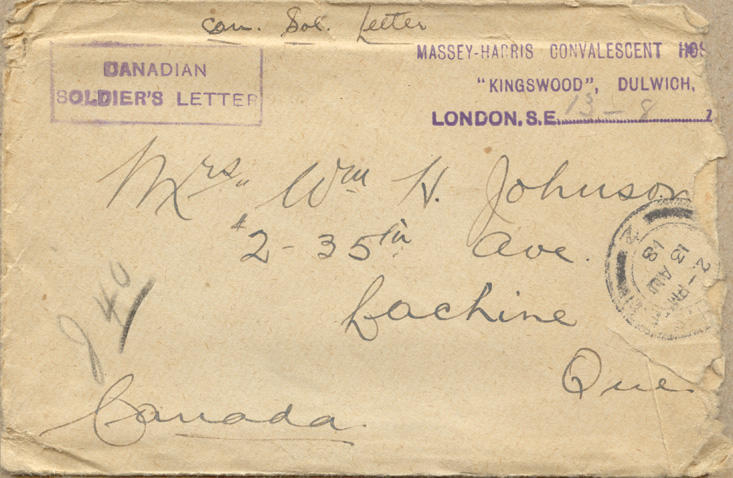 Can. Sol. Letter
CANADIAN
SOLDIER'S LETTER
MASSEY-HARRIS CONVALESCENT HOS
"KINGSWOOD", DULWICH,
LONDON, S.E. 13-8
Mrs. Wm H. Johnson
#2-35th Ave.
Lachine
Que
Canada.
40
2-PM
13 AU
18